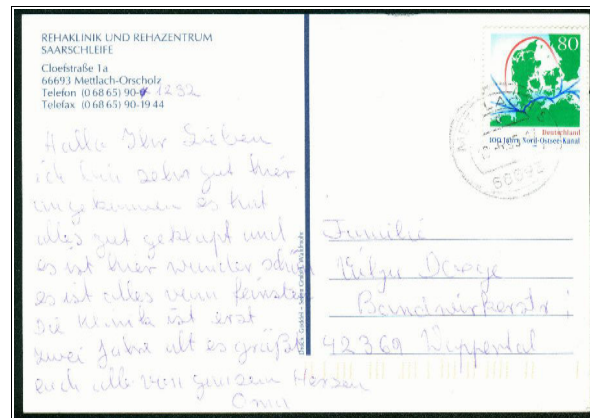 REHAKLINIK UND REHAZENTRUM
SAARSCHLEIFE
Cloefstraße 1a
66693 Mettlach-Orscholz
Telefon (0 68 65) 90- 1232
Telefax (0 68 65) 90-19 44
Hallo Ihr Lieben
ich bin sehr gut hier
angekommen es hat
alles gut geklapt und
es ist hier wunder schön
es ist alles vom feinsten
die Klinik ist erst
zwei Jahre alt es grüßt
euch alle von ganzem Herzen
Oma
80
Deutschland
100 Jahre Nord-Ostsee-Kanal
66693
Familie
Bandwirkerstr
42369 Wuppertal